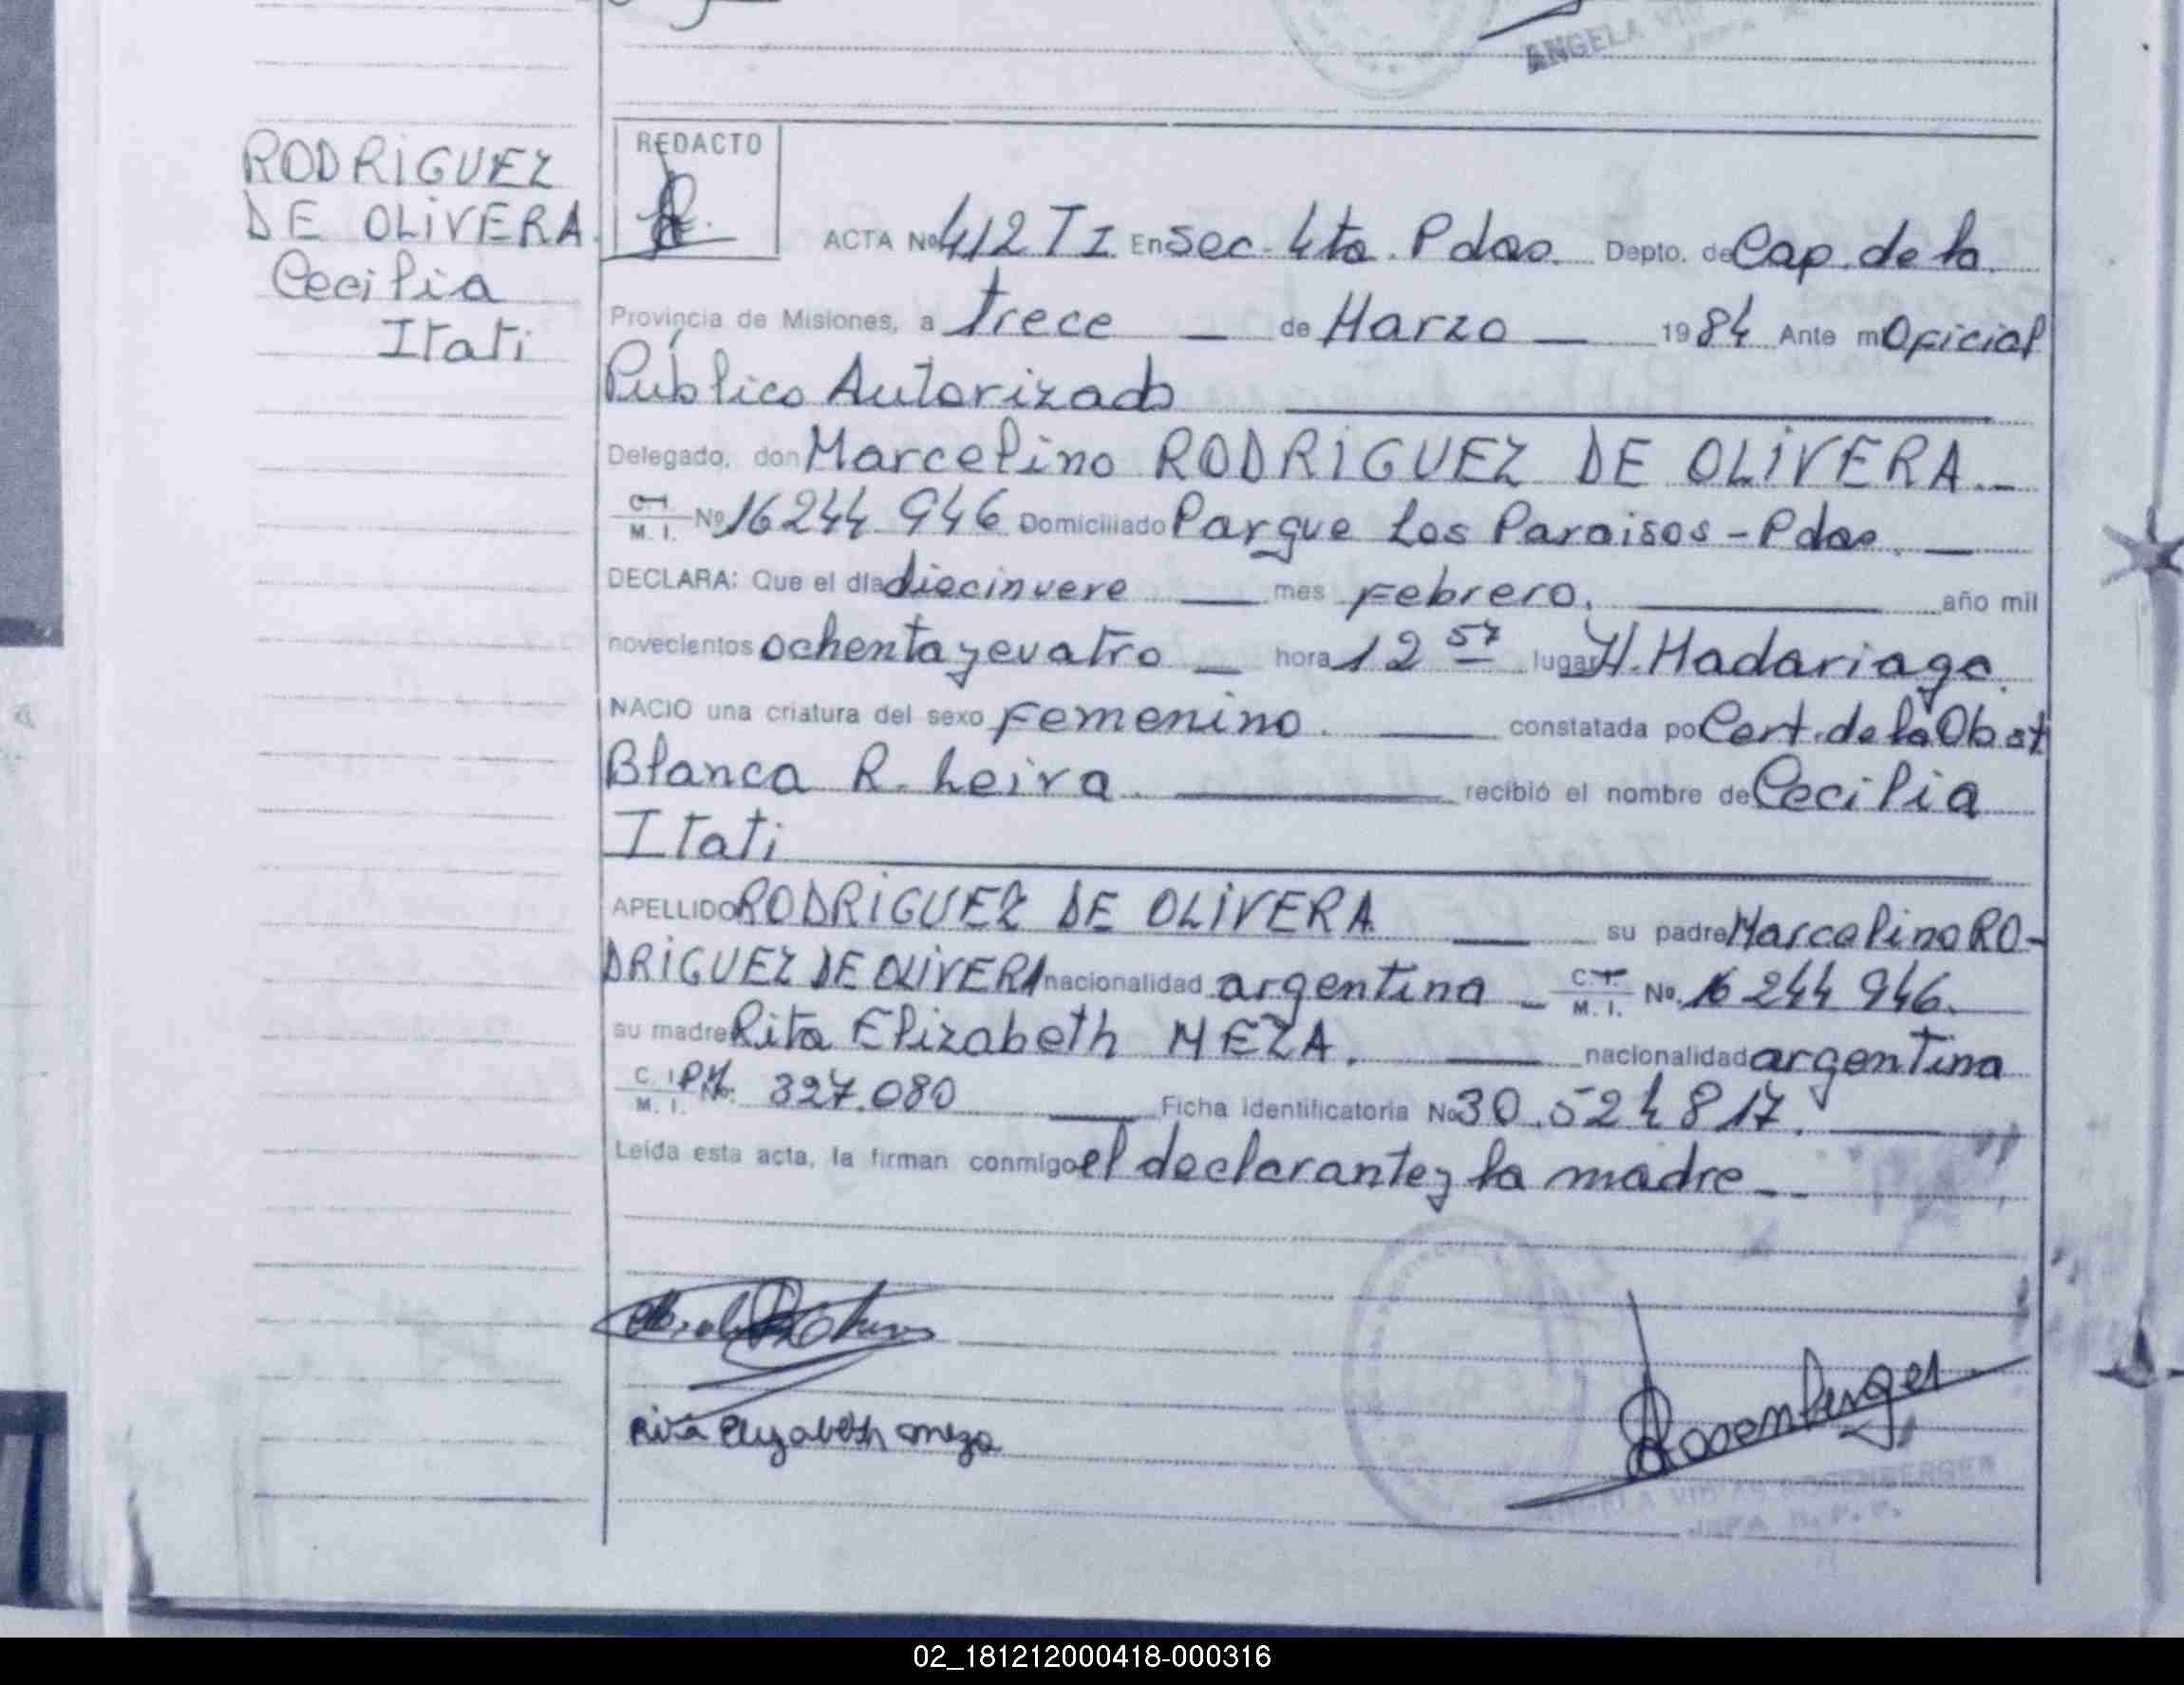 ANGELA VID
JEFA
RODRIGUEZ
DE OLIVERA
Cecilia
Itati
REDACTO
ACTA Nº 412 T I En Sec. 4ta. Pdas. Depto. de Cap. de la
Provincia de Misiones, a trece — de Marzo — 1984 Ante mí Oficial
Público Autorizado
Delegado, don Marcelino RODRIGUEZ DE OLIVERA.—
C.I. M.I. Nº 16244 946 Domiciliado Parque Los Paraisos - Pdas. —
DECLARA: Que el día diecinueve — mes Febrero. — año mil
novecientos ochenta y cuatro — hora 12 57 lugar H. Madariaga.
NACIO una criatura del sexo Femenino. — constatada por Cert. de la Obst
Blanca R. Leiva. — recibió el nombre de Cecilia
Itati
APELLIDO RODRIGUEZ DE OLIVERA — su padre Marcelino RO-
DRIGUEZ DE OLIVERA nacionalidad argentina — C.I. M.I. Nº 16 244 946.
su madre Rita Elizabeth MEZA. — nacionalidad argentina
C.I. M.I. PM. 327.080 — Ficha identificatoria Nº 30.524817. —
Leída esta acta, la firman conmigo el declarante y la madre --
Rita Elizabeth meza
Rosenberger
ANGELA VIDAL ROSENBERGER
JEFA R.P.P.
02_181212000418-000316